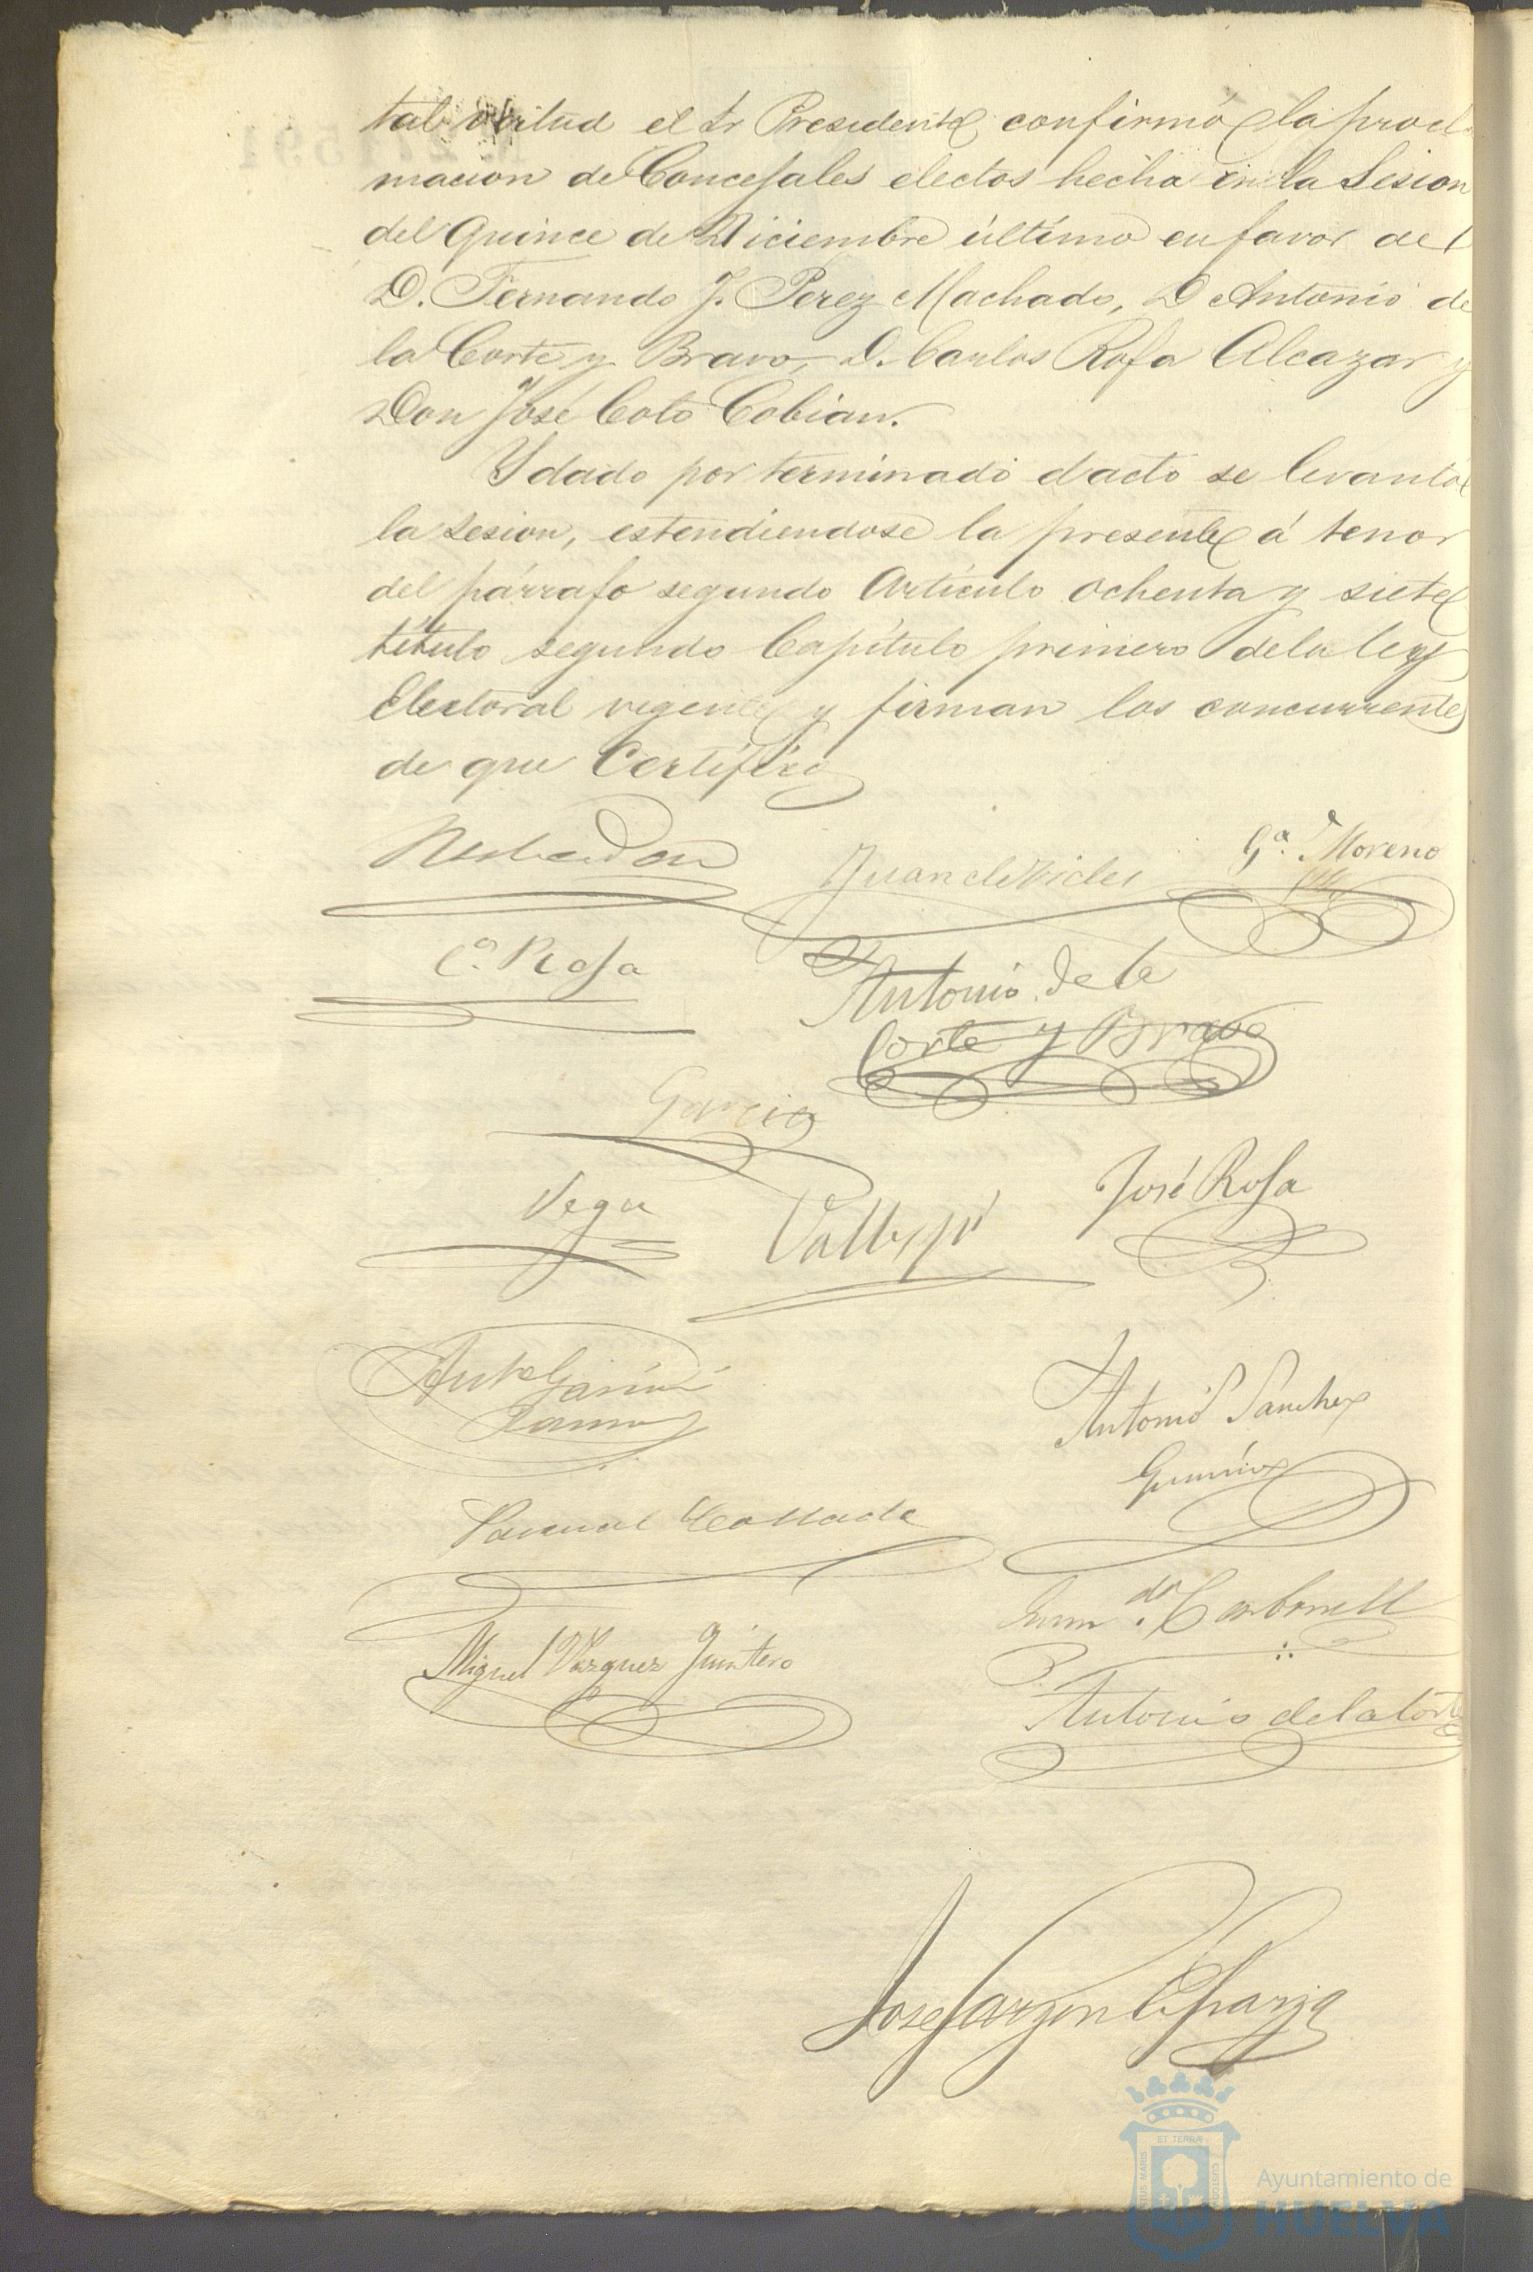 tal virtud el Sr Presidente confirmó la procla
macion de Concejales electos hecha en la Sesion
del Quince de Diciembre último en favor de
D. Fernando J. Perez Machado, D Antonio de
la Corte y Bravo, D. Carlos Rofa Alcazar y
Don José Coto Cobian.
Y dado por terminado el acto se levantó
la sesion, estendiendose la presente á tenor
del párrafo segundo Artículo ochenta y siete
título segundo Capítulo primero de la ley
Electoral vigente y firman los concurrentes
de que Certifico
Juan de Vides
Gª. Moreno
Cº. Rofa
Antonio de la
Corte y Bravo
Garcia
Vega
José Rofa
Antº Garcia
Ramos
Antonio Sanchez
Collada
Carbonell
Miguel Vazquez Quintero
Antonio de la Corte
Jose Garzon Esparza
ET TERRÆ
Ayuntamiento de
HUELVA